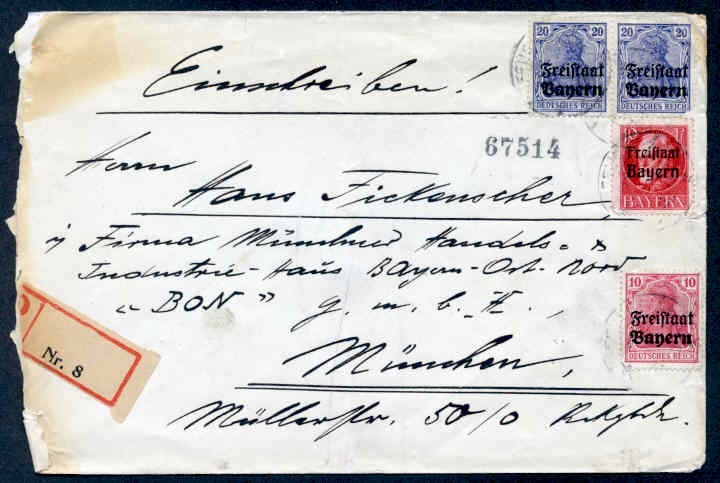 20 20 20 20
Freistaat Freistaat
Bayern Bayern
DEUTSCHES REICH DEUTSCHES REICH
Einschreiben!
67514
Freistaat
Bayern
BAYERN
Herrn
Hans Fickenscher,
Firma Münchner Handels- &
Industrie-Haus Bayern-Ost-Nord
"BON" G.m.b.H.,
10 10
Freistaat
Bayern
DEUTSCHES REICH
Nr. 8
München,
Müllerstr. 50/0